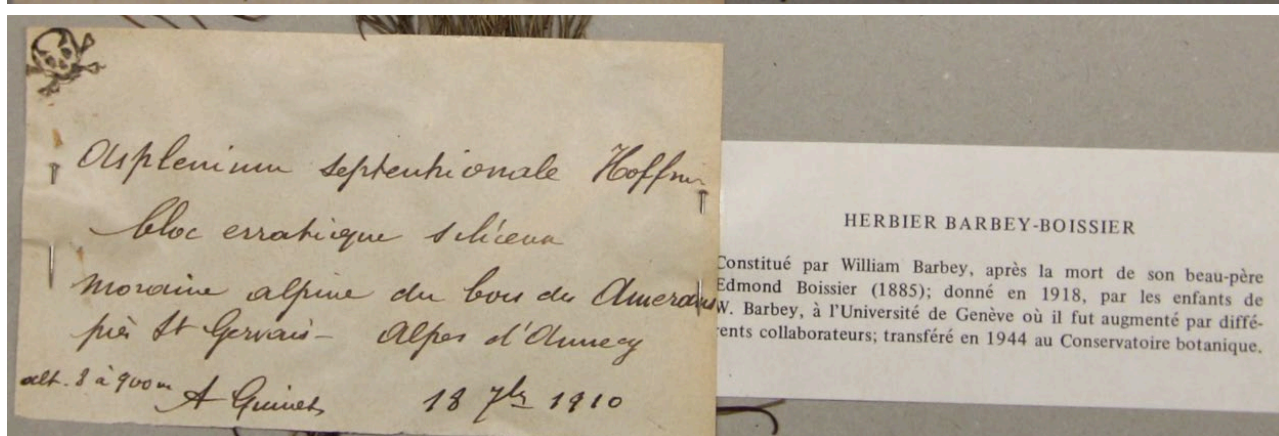 Asplenium septentrionale Hoffm
bloc erratique siliceux
moraine alpine du bois des Amerans
près St Gervais - Alpes d'Annecy
alt. 8 à 900m A Guinet 18 7bre 1910
HERBIER BARBEY-BOISSIER
Constitué par William Barbey, après la mort de son beau-père
Edmond Boissier (1885); donné en 1918, par les enfants de
W. Barbey, à l'Université de Genève où il fut augmenté par diffé-
rents collaborateurs; transféré en 1944 au Conservatoire botanique.